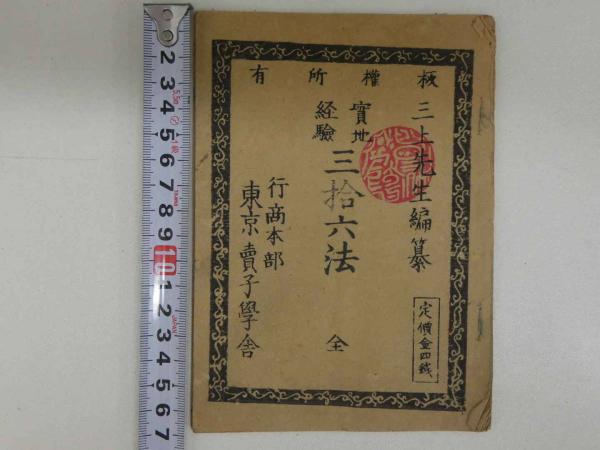 板權所有
三上先生編纂
定價金四錢
實地
経驗
三拾六法
全
行商本部
東京賣子學舍
2 3 4 5 6 7 8 9 10 1 2 3 4 5 6 7
JAPAN